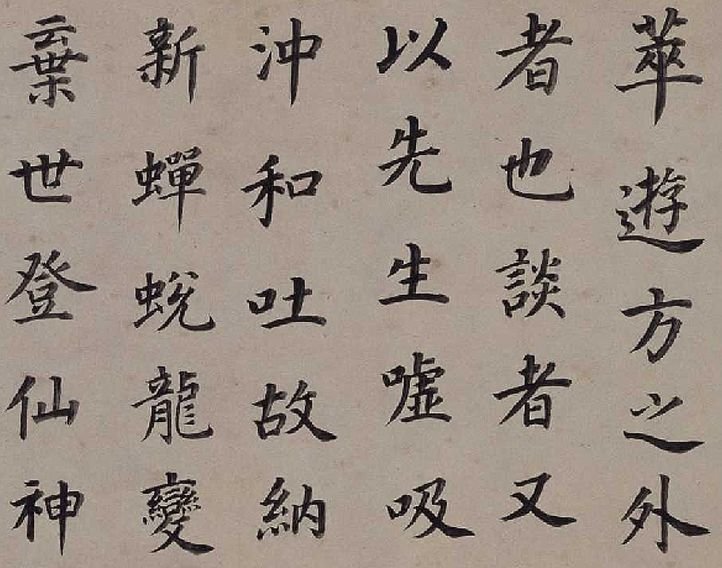 萃遊方之外
者也談者又
以先生噓吸
沖和吐故納
新蟬蛻龍變
棄世登仙神